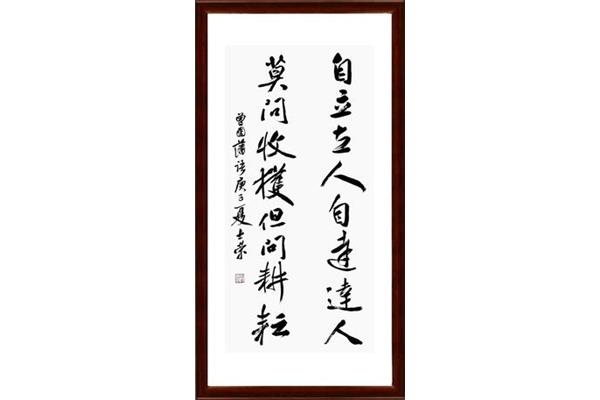 自立立人自達達人
莫问收獲但问耕耘
曾国藩语庚子夏士荣